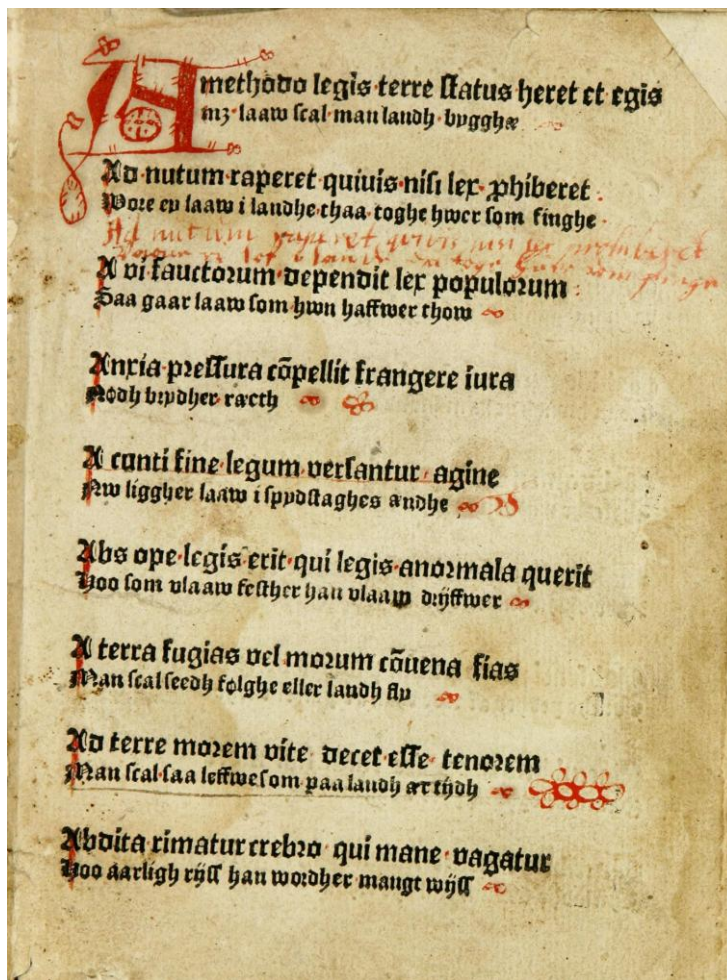 A methodo legis terre status heret et egis
mꝫ laaw scal man landh bygghæ
Ad nutum raperet quiuis nisi lex ꝓhiberet
Wore ey laaw i landhe thaa toghe hwer som finghe
Ad nutum raperet quivis nisi lex prohiberet
A vi fauctorum dependit lex populorum
Saa gaar laaw som hwn haffwer thow
Anxia pressura cōpellit frangere iura
Nødh brydher ræcth
A conti fine legum versantur agine
Nw liggher laaw i spydstaghes ændhe
Abs ope legis erit qui legis anormala querit
Hoo som vlaaw festher han vlaaw drijffwer
A terra fugias vel morum cōuena fias
Man scal seedh folghe eller landh fly
Ad terre morem vite decet esse tenorem
Man scal saa leffwe som paa landh ær tijdh
Abdita rimatur crebro qui mane vagatur
Hoo aarligh rijss han wordher mangt wijss